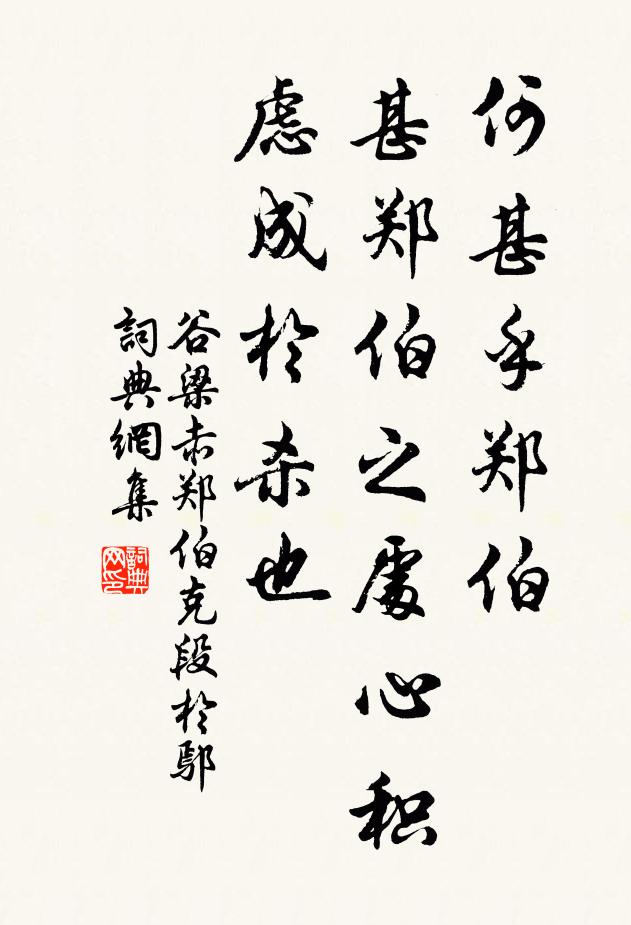 何甚乎郑伯
甚郑伯之處心积
慮成於杀也
谷梁赤郑伯克段於鄢
詞典網集
詞典网印